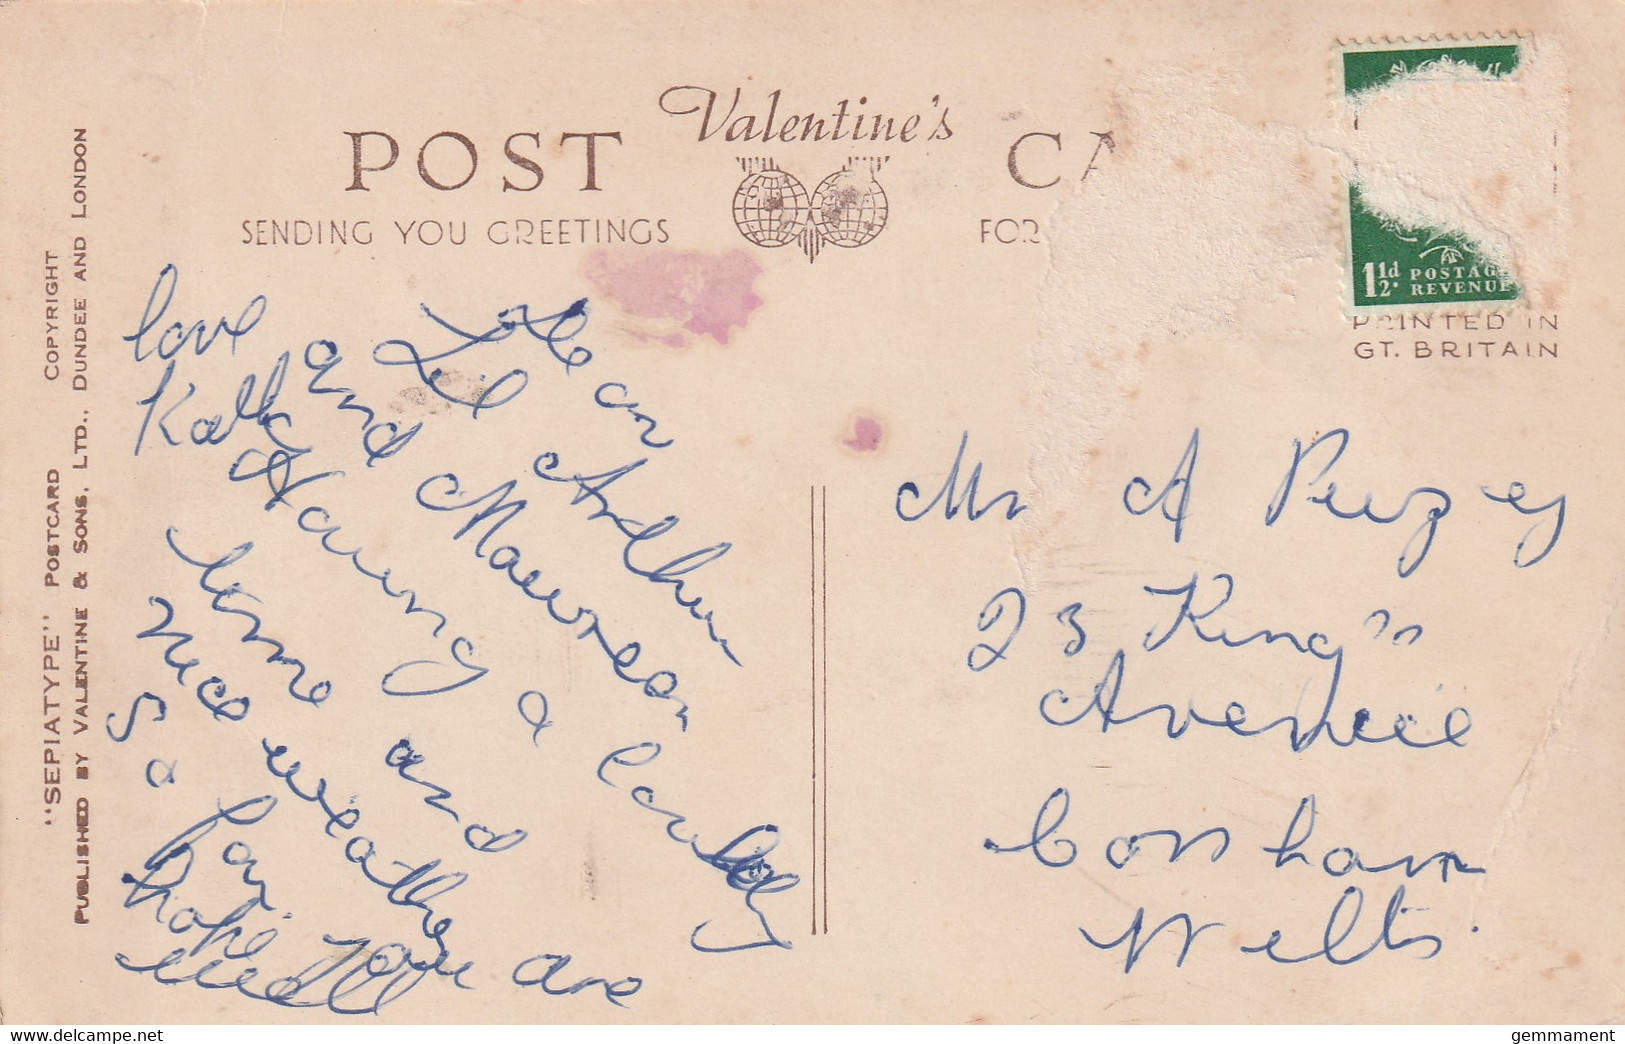 Valentine's
POST CA
SENDING YOU GREETINGS FOR
1½d POSTAG
REVENUE
PRINTED IN
GT. BRITAIN
COPYRIGHT
"SEPIATYPE" POSTCARD
PUBLISHED BY VALENTINE & SONS, LTD., DUNDEE AND LONDON
Dear
Lil Arthur
and Maureen
Having a lovely
time and
nice weather
So far.
hope you are
well
love
Kath
Mr A
23 King's
Avenue
Corsham
Wilts.
gemmament